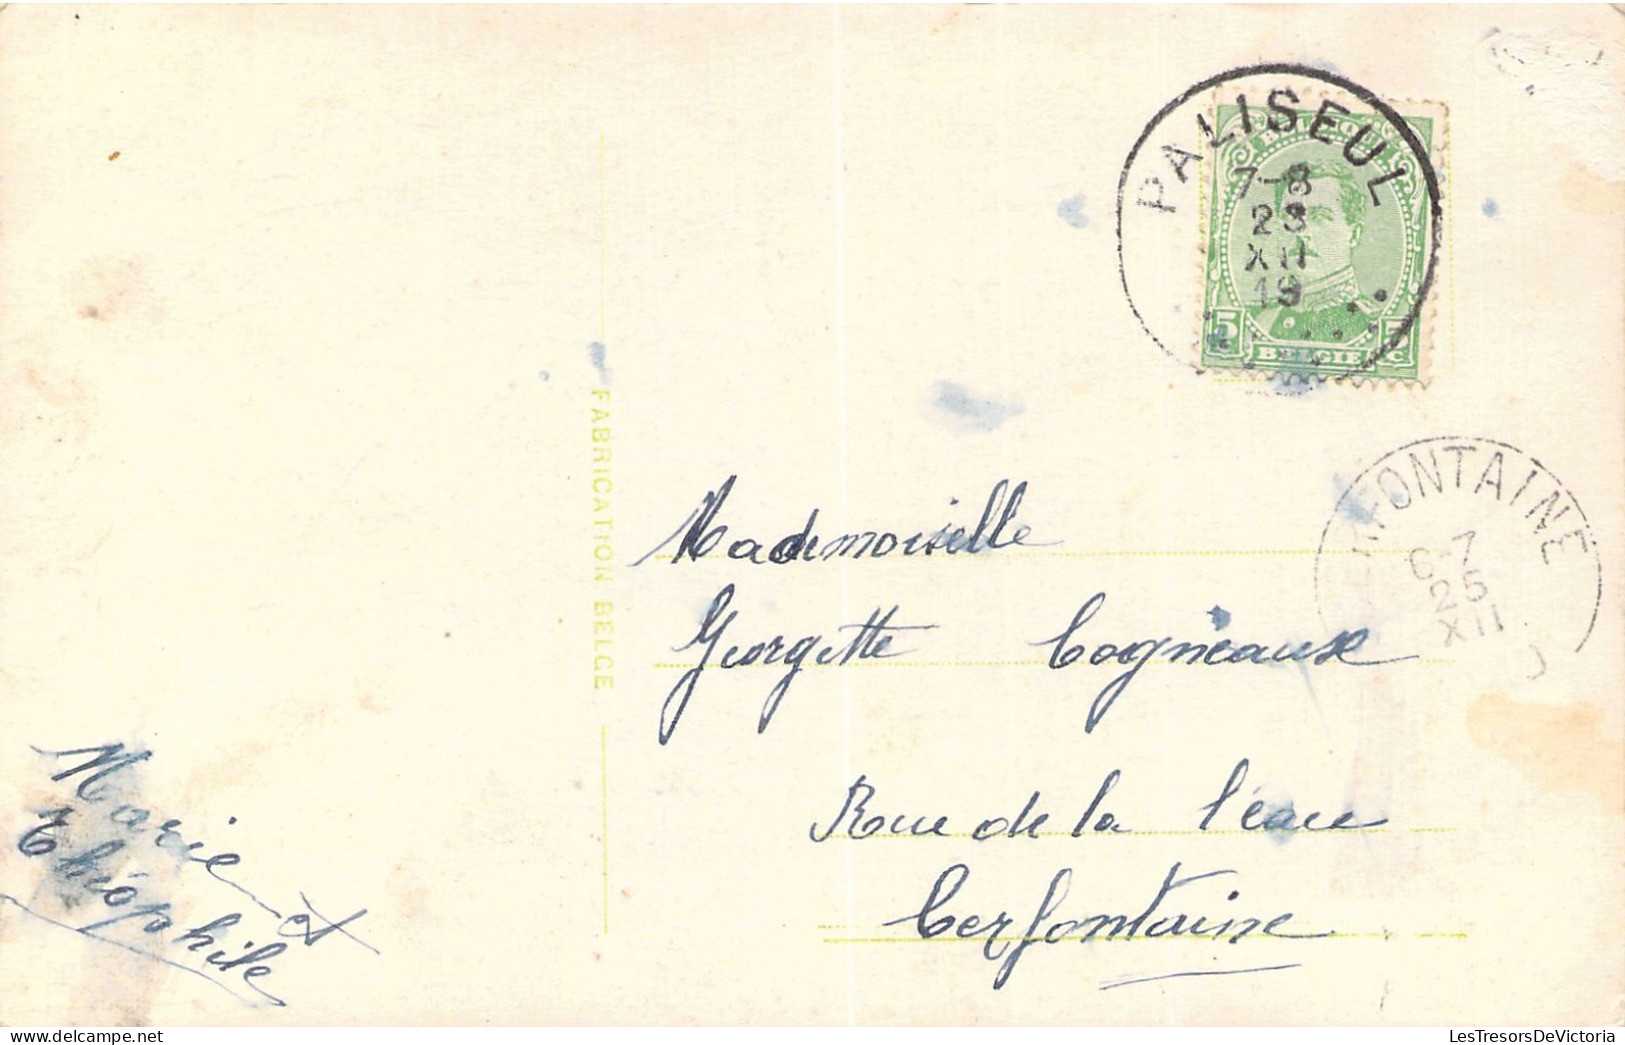 PALISEUL
7-8
23
XII
19
5 5
BELGIE c
FONTAINE
6-7
25
XII
FABRICATION BELGE
Mademoiselle
Georgette Cogneaux
Rue de la l'eau
Cerfontaine
Marie et
Théophile
LesTresorsDeVictoria